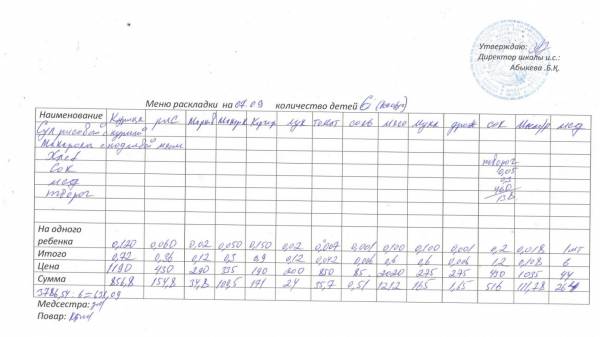 Утверждаю:
Директор школы и.с.:
Абыкева .Б.Қ.
Меню раскладки на 07.09 количество детей 6
Наименование Курица рис Марков Макарон Кефир лук Томат соль мясо Мука дрож сок Масло/р мёд
Суп рисовый с курицей
Макароны с подливой мясн
Хлеб творог
Сок 0,05
мёд 0,3
творог 460
138
На одного
ребенка 0,120 0,060 0,02 0,050 0,150 0,02 0,007 0,001 0,100 0,100 0,001 0,2 0,018 1шт
Итого 0,72 0,36 0,12 0,3 0,9 0,12 0,042 0,006 0,6 0,6 0,006 1,2 0,108 6
Цена 1190 430 290 335 190 200 850 85 2020 275 275 430 1035 44
Сумма 856,8 154,8 34,8 100,5 171 24 35,7 0,51 1212 165 1,65 516 111,78 264
3786,54 : 6 = 631,09
Медсестра:
Повар: